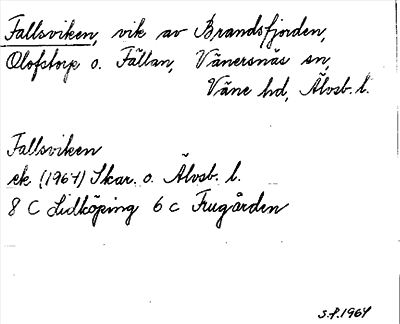 Fallsviken, vik av Brandsfjorden,
Olofstorp o. Fällan, Vänersnäs sn,
Väne hd, Älvsb. l.
Fallsviken
ek (1964) Skar. o. Älvsb. l.
8 C Lidköping 6 c Frugården
S.f. 1964